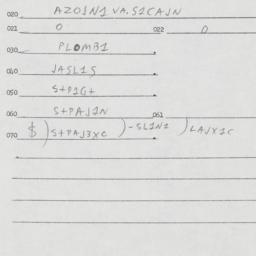 020 AZOJNJ VA.SICAJN
021 O 022 O
030 PLOMBI
040 JASLIS
050 S+PIG+
060 S+PAJIN 061
070 $)S+PAJ3XC )-SLINI )LAJXIC